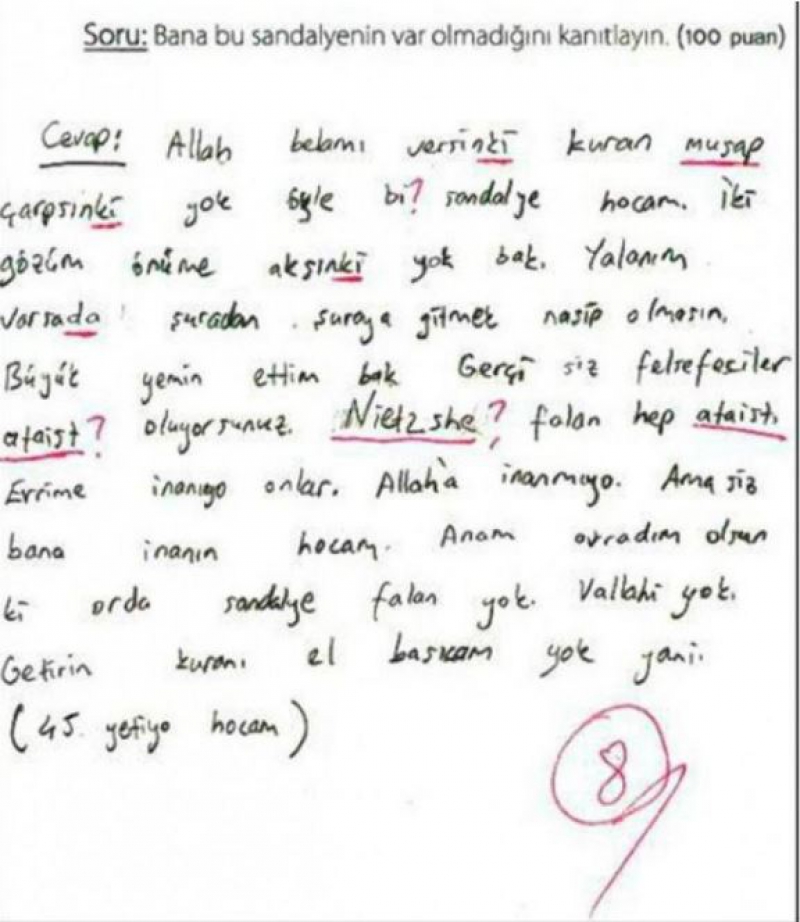 Soru: Bana bu sandalyenin var olmadığını kanıtlayın. (100 puan)
Cevap: Allah belamı versinki kuran musap
çarpsınki yok öyle bi? sandalye hocam. İki
gözüm önüme aksınki yok bak. Yalanım
varsada şuradan şuraya gitmek nasip olmasın.
Büyük yemin ettim bak Gerçi siz felsefeciler
ataist? oluyorsunuz. Nietzshe? falan hep ataist.
Evrime inanıyo onlar. Allah'a inanmıyo. Ama siz
bana inanın hocam. Anam avradım olsun
ki orda sandalye falan yok. Vallahi yok.
Getirin kuranı el basıcam yok yani.
(45 yetiyo hocam)
8